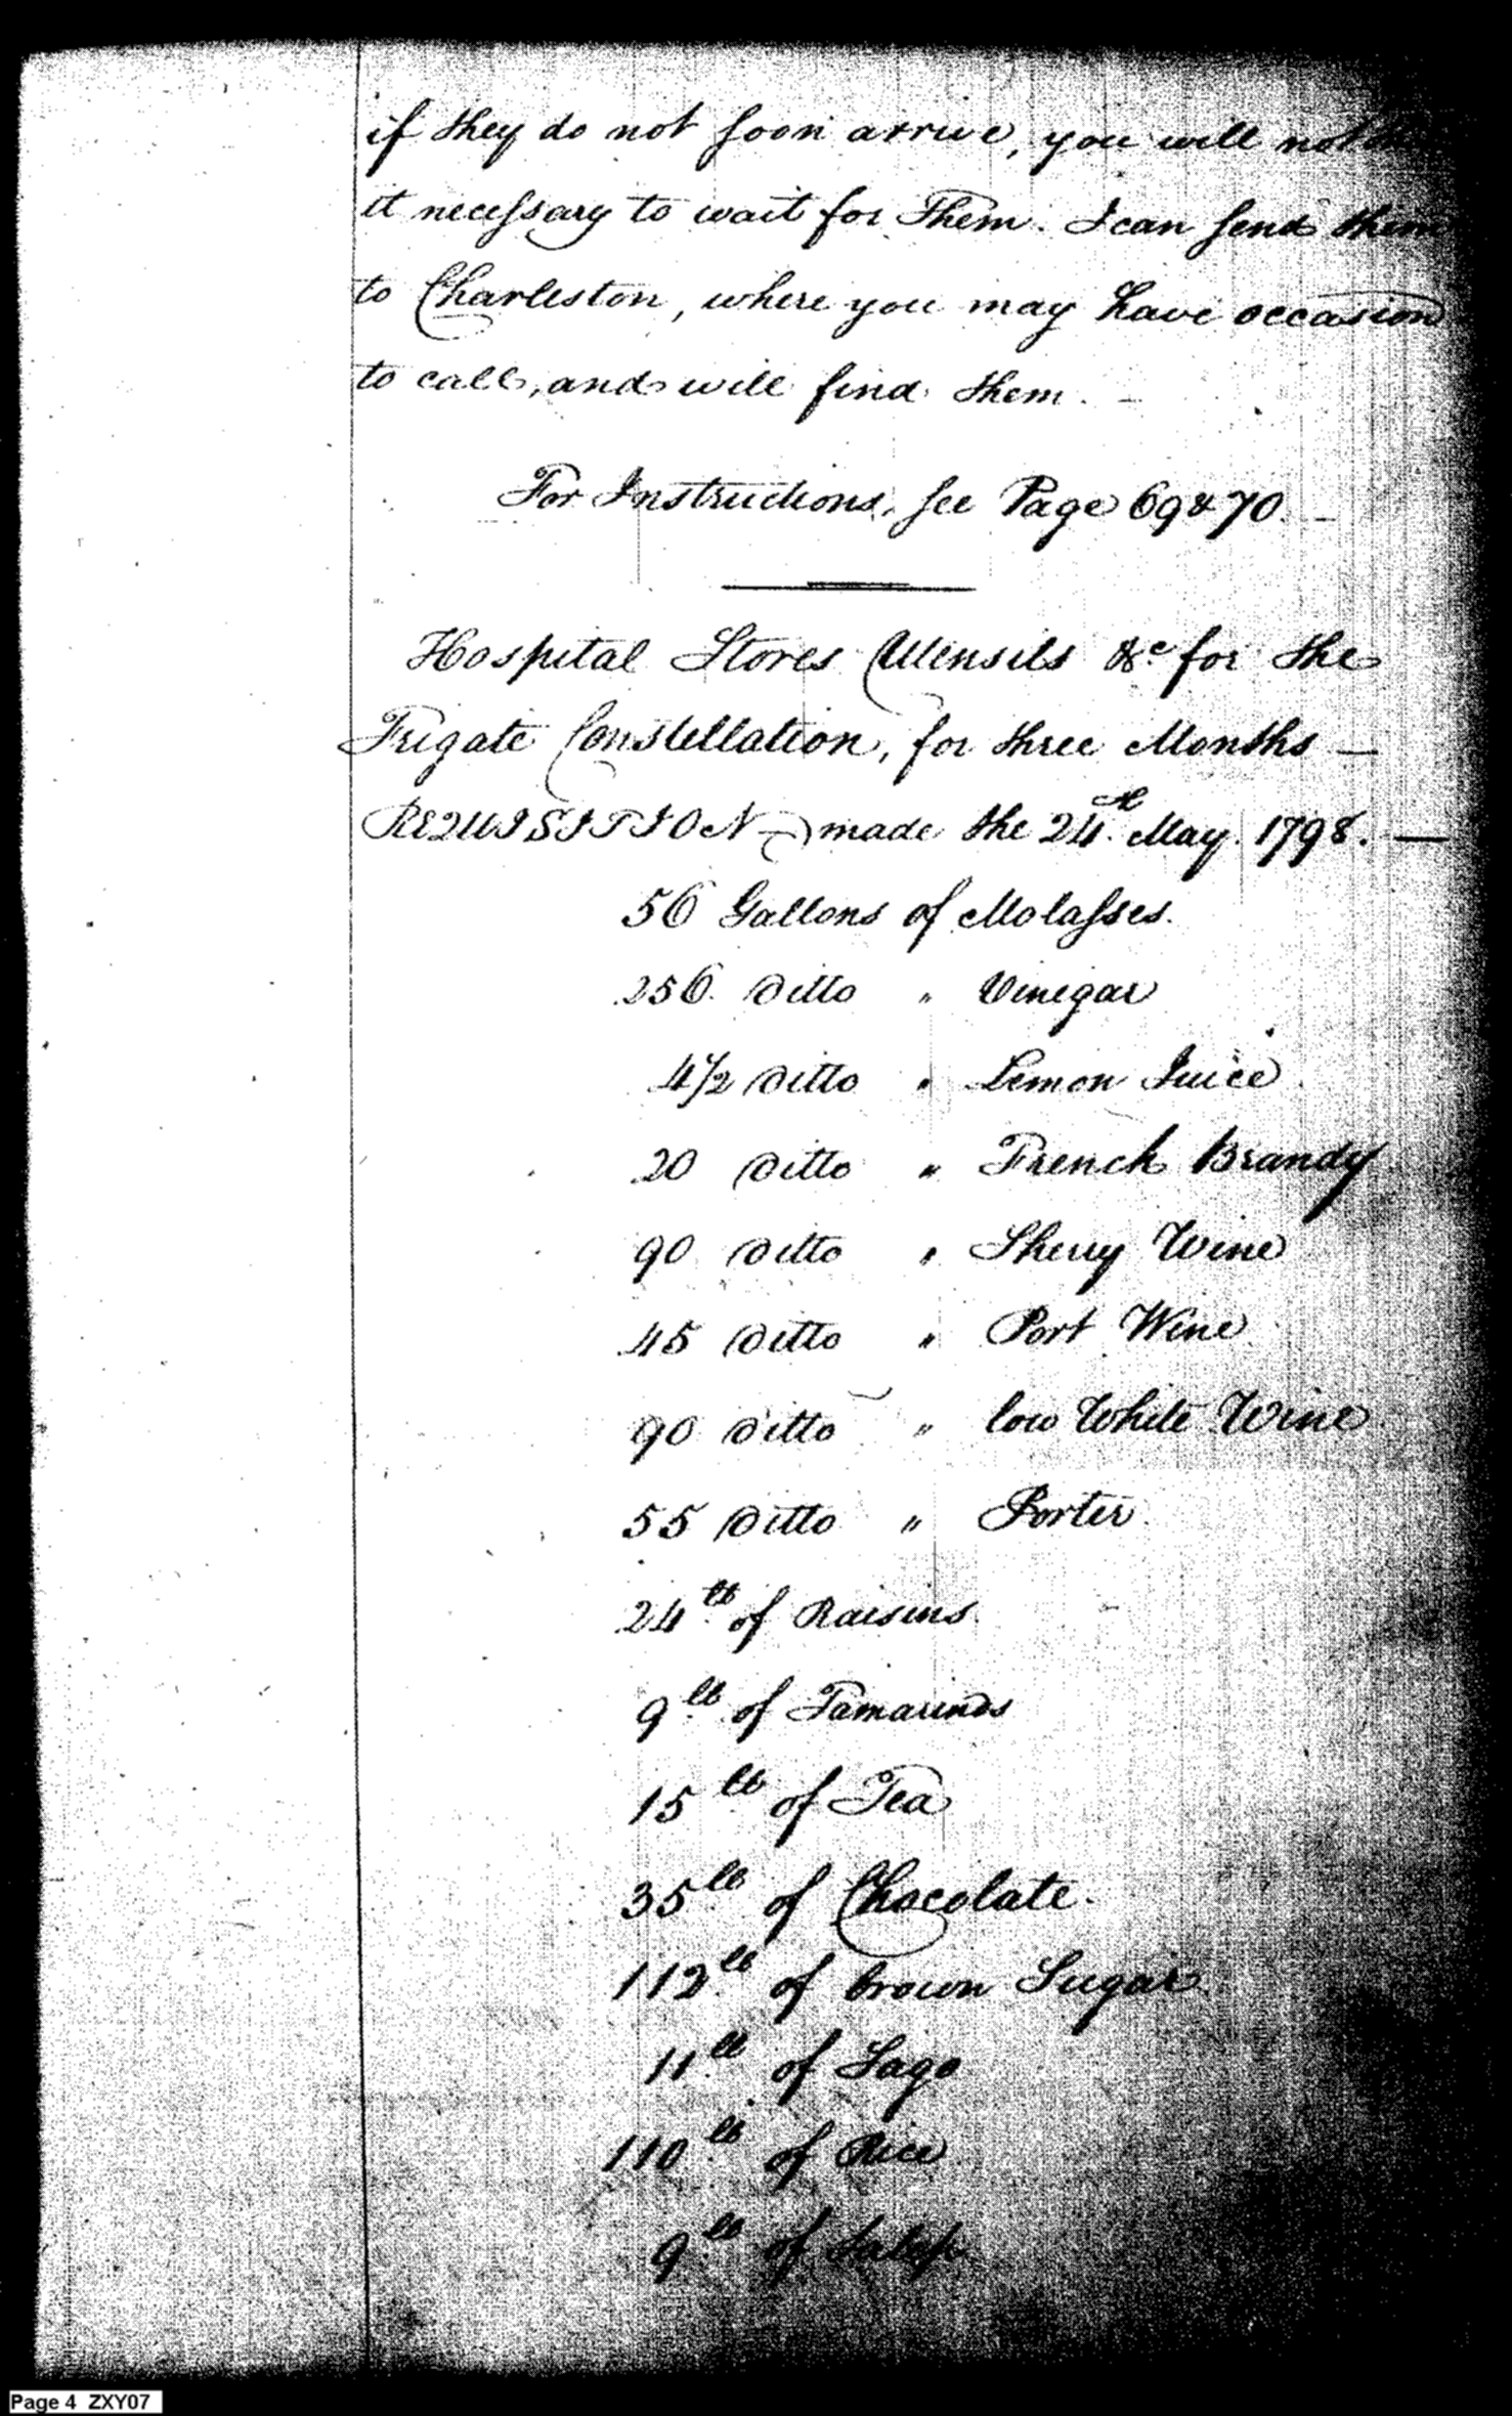 if they do not soon arrive, you will not
it necessary to wait for Them. I can send them
to Charleston, where you may have occasion
to call, and will find them. –
For Instructions, see Page 69 & 70. –
Hospital Stores Utensils &c for the
Frigate Constellation, for three Months —
REQUISITION – made the 24th May. 1798. —
56 Gallons of Molasses.
256. Ditto " Vinegar
4 1/2 Ditto " Lemon Juice
20 Ditto " French Brandy
90 Ditto " Sherry Wine
45 Ditto " Port Wine
90 Ditto " low White Wine
55 Ditto " Porter.
24 lb of Raisins.
9 lb of Tamarinds
15 lb of Tea
35 lb of Chocolate.
112 lb of brown Sugar
11 lb of Sago
110 lb of Rice
9 lb of Salep
Page 4 ZXY07